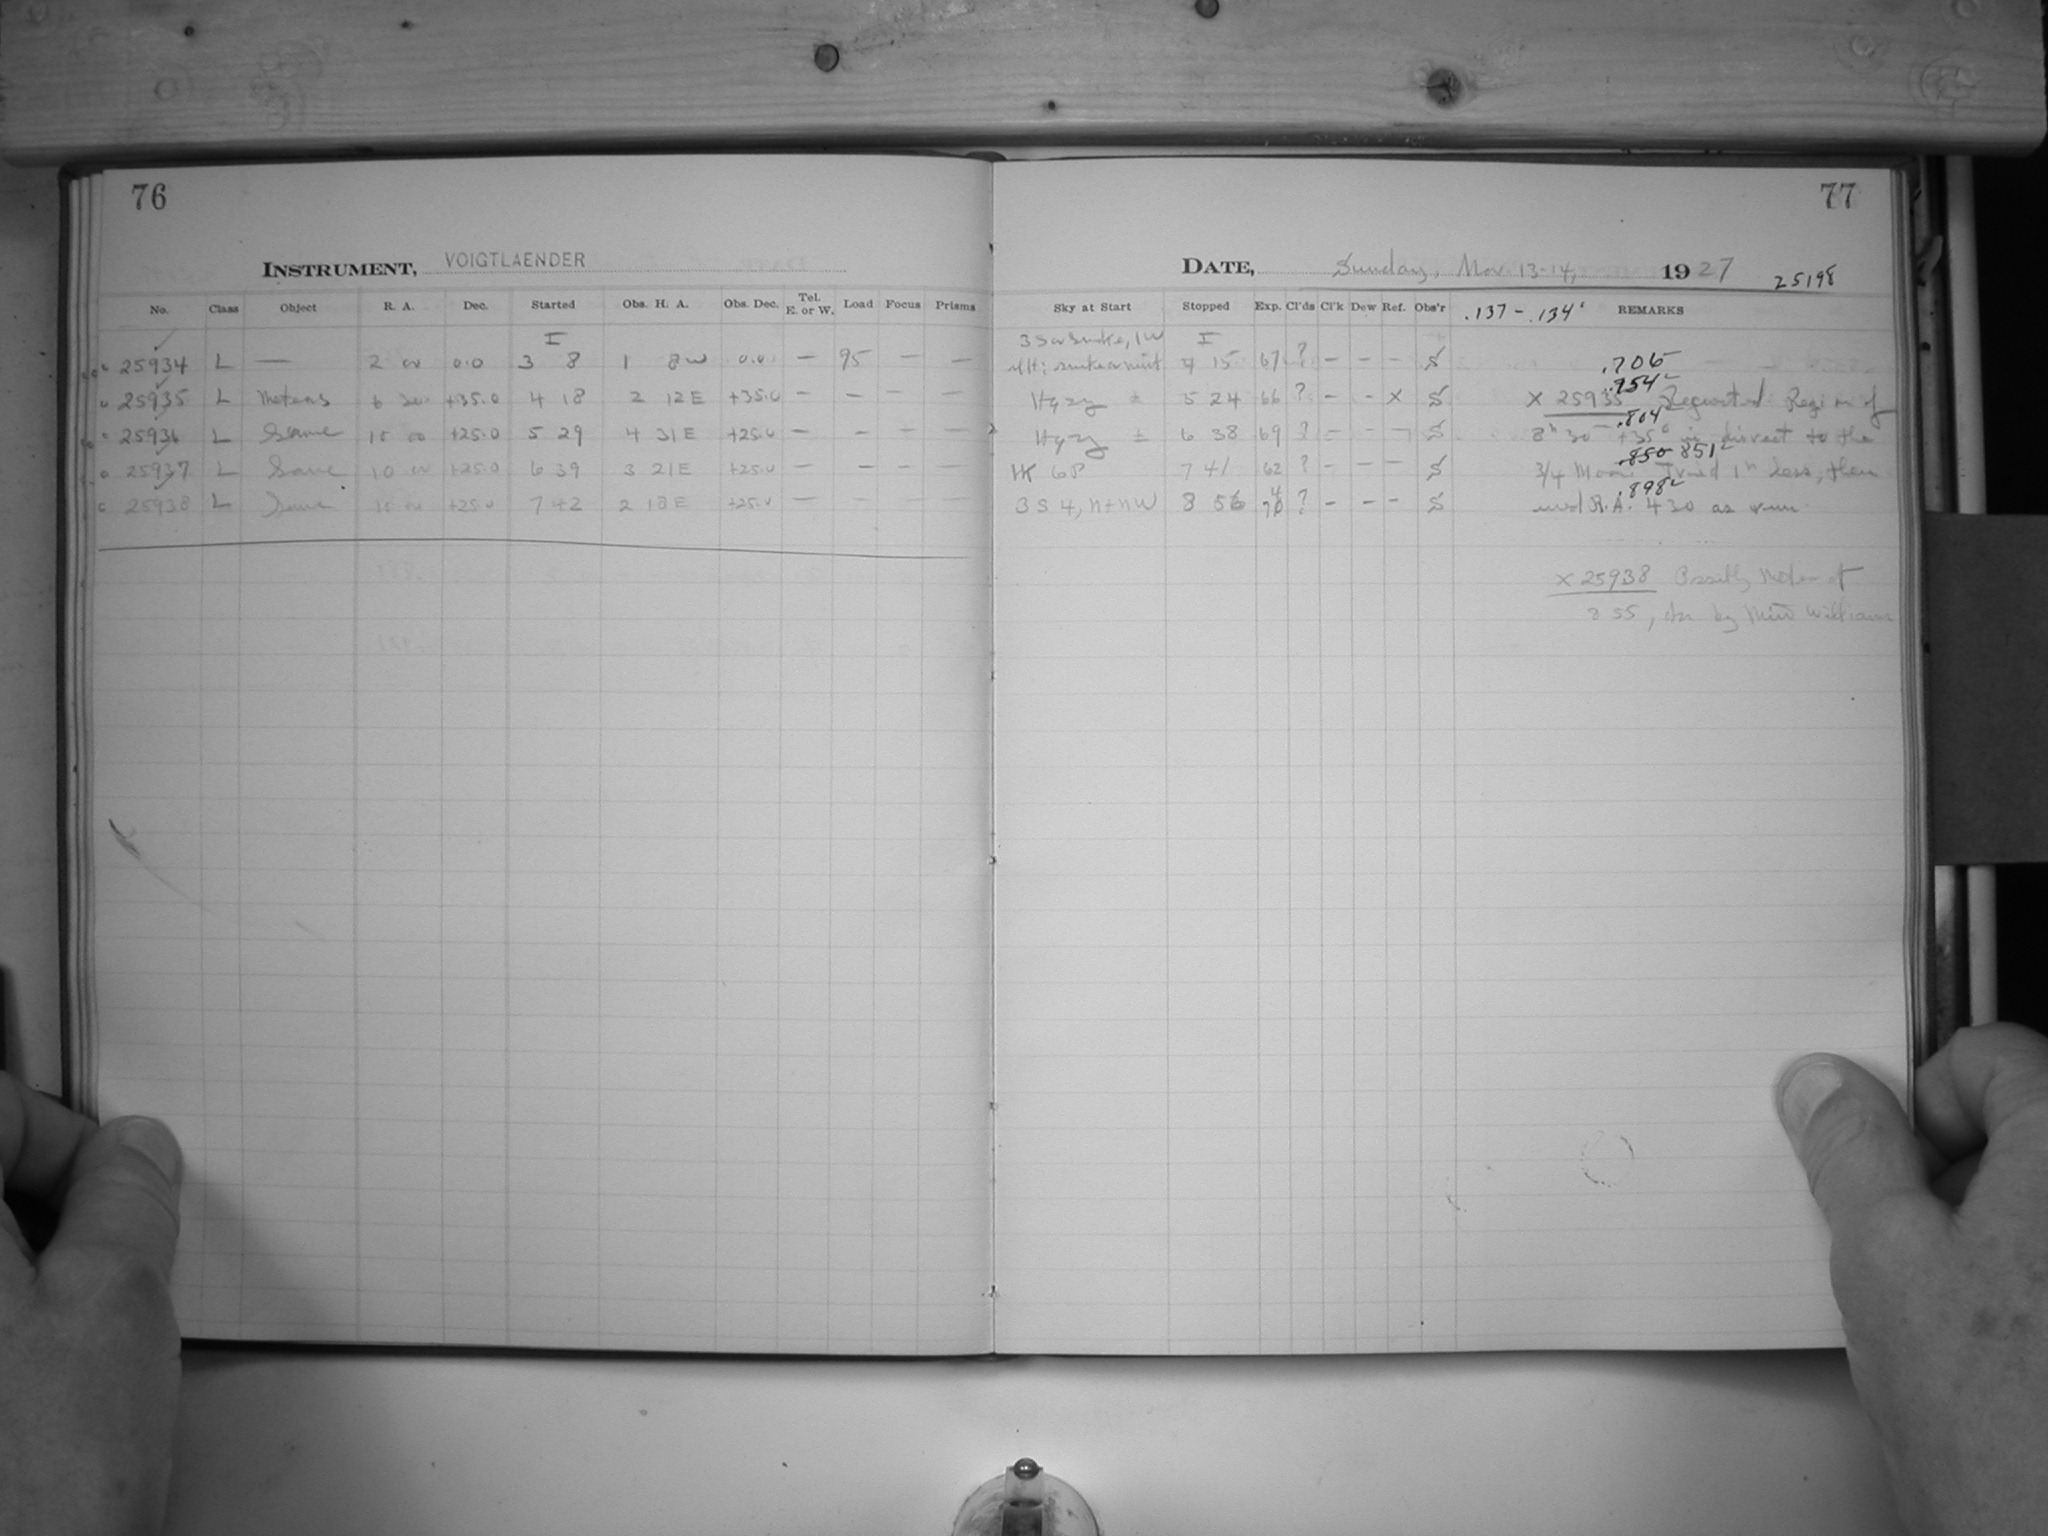 76
INSTRUMENT, VOIGTLAENDER
No. Class Object R. A. Dec. Started Obs. H. A. Obs. Dec. Tel. E. or W. Load Focus Prisms
I
25934 L — 2 00 0.0 3 8 1 8 W 0.0 — 95 — —
25935 L Meteors 6 30 +35.0 4 18 2 12 E +35.0 — — — —
25936 L Same 10 00 +25.0 5 29 4 31 E +25.0 — — — —
25937 L Same 10 00 +25.0 6 39 3 21 E +25.0 — — — —
25938 L Same 10 00 +25.0 7 42 2 18 E +25.0 — — — —
77
DATE, Sunday, Nov. 13-14, 1927
25198
Sky at Start Stopped Exp. Cl'ds Cl'k Dew Ref. Obs'r .137 - .134 REMARKS
I
4 15 67 ? — — — S .706
Hazy ± 5 24 66 ? — — X S .754
X 25935 Requested Region of
Hazy ± 6 38 69 ? — — — S .804
8h 30m +35° is direct to the
HK 6P 7 41 62 ? — — — S .850 851
3/4 Moon. Tried 1h less, then
3 S 4, N + NW 8 56 74 ? — — — S .898
used R.A. 4 30 as
X 25938 Possibly Meteor at
8 55, obs by Miss Williams